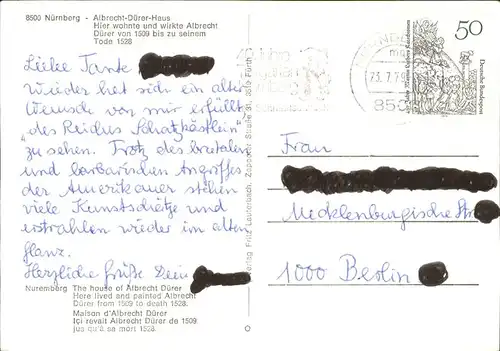 8500 Nürnberg - Albrecht-Dürer-Haus
Hier wohnte und wirkte Albrecht
Dürer von 1509 bis zu seinem
Tode 1528
Liebe Tante
wieder hat sich ein alter
Wunsch von mir erfüllt
"des Reiches Schatzkästlein"
zu sehen. Trotz des brutalen
und barbarischen Angriffes
der Amerikaner stehen
viele Kunstschätze und
erstrahlen wieder im alten
Glanz.
Herzliche Grüße Dein
Nuremberg The house of Albrecht Dürer
Here lived and painted Albrecht
Dürer from 1509 to death 1528.
Maison d'Albrecht Dürer
Içi revait Albrecht Dürer de 1509
jus qu'à sa mort 1528.
Verlag Fritz Lauterbach, Zoppoter Straße 8510 Fürth
23.7.79
850
50
Deutsche Bundespost
Frau
Mecklenburgische Str
1000 Berlin